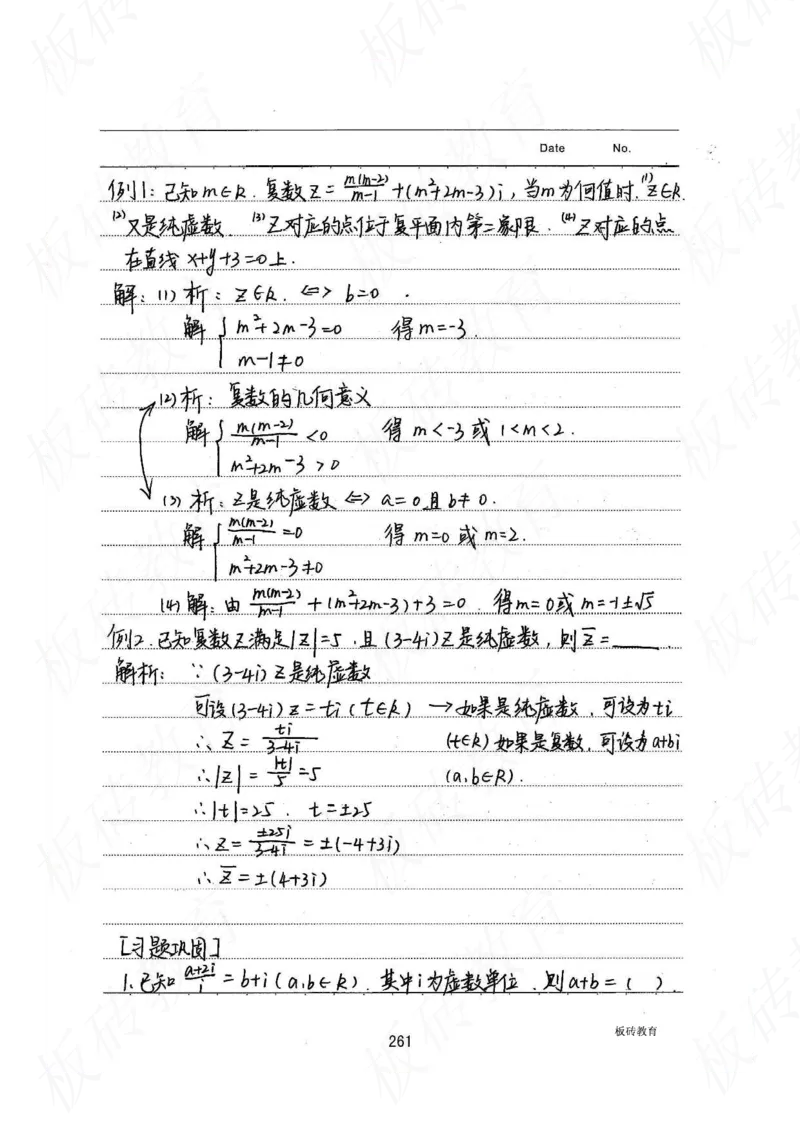 Date No.
例1: 已知m∈R. 复数Z = \frac{m(m-2)}{m-1} +(m²+2m-3)i, 当m为何值时. ⁽¹⁾Z∈R.
⁽²⁾Z是纯虚数. ⁽³⁾Z对应的点位于复平面内第二象限. ⁽⁴⁾Z对应的点
在直线 x+y+3=0上.
解: (1) 析: Z∈R. <=> b=0 .
解 { m²+2m-3=0 得m=-3.
m-1≠0
(2) 析: 复数的几何意义
解 { \frac{m(m-2)}{m-1} <0 得 m<-3 或 1<m<2.
m²+2m-3 >0
(3) 析: Z是纯虚数 <=> a=0 且 b≠0.
解 { \frac{m(m-2)}{m-1} =0 得 m=0 或 m=2.
m²+2m-3≠0
(4) 解: 由 \frac{m(m-2)}{m-1} +(m²+2m-3)+3=0. 得m=0或 m=-1±√5
例2. 已知复数Z满足|Z|=5. 且 (3-4i)Z是纯虚数, 则 \bar{Z} = ____.
解析: ∵ (3-4i) Z是纯虚数
可设(3-4i) Z = ti (t∈R) → 如果是纯虚数. 可设为ti
∴ Z = \frac{ti}{3-4i} (t∈R) 如果是复数, 可设为a+bi
∴ |Z| = \frac{|t|}{5} =5 (a,b∈R).
∴ |t|=25 . t=±25
∴ Z = \frac{±25i}{3-4i} = ±(-4+3i)
∴ \bar{Z} = ±(4+3i)
[习题巩固]
1. 已知 \frac{a+2i}{i} = b+i (a,b∈R). 其中i为虚数单位. 则a+b = ( ).
261
板砖教育